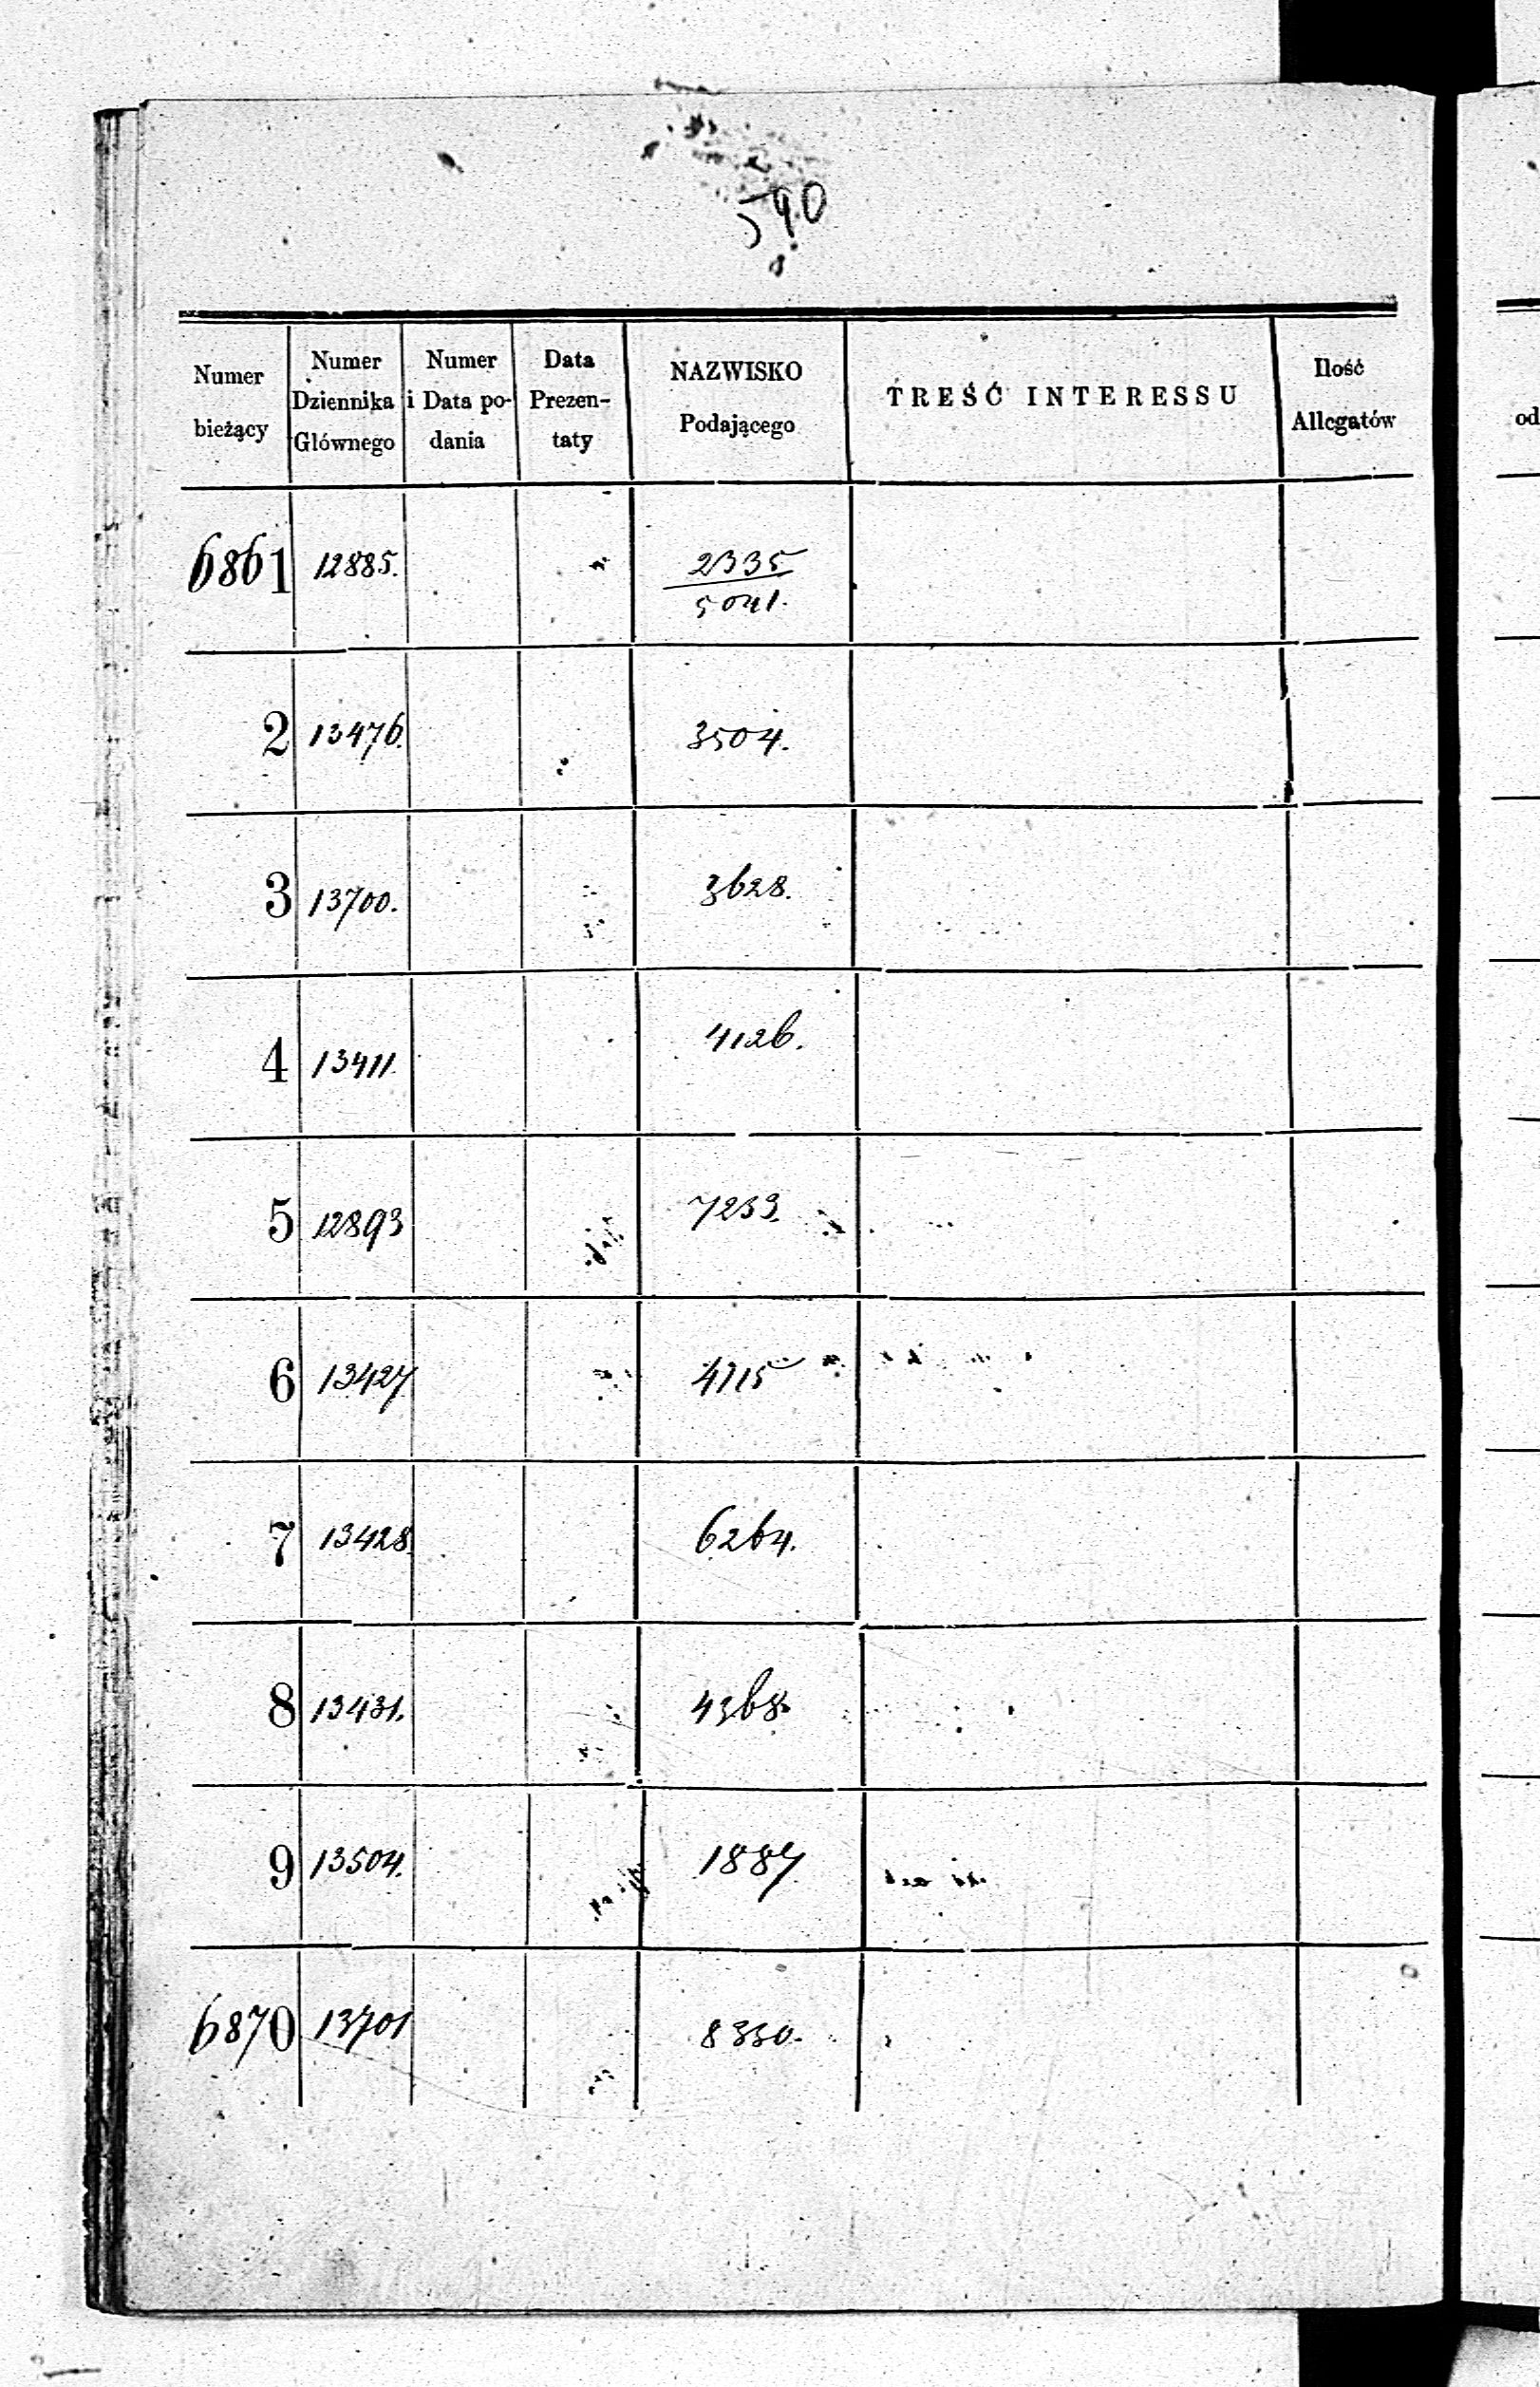 590
Numer bieżący | Numer Dziennika Głównego | Numer i Data podania | Data Prezentaty | NAZWISKO Podającego | TREŚĆ INTERESSU | Ilość Allegatów
6861 | 12885. | 2335
5041.
2 | 13476. | 3504.
3 | 13700. | 3628.
4 | 13411. | 4126.
5 | 12893 | 7233.
6 | 13427 | 4115
7 | 13428. | 6264.
8 | 13431. | 4368.
9 | 13504. | 1887
6870 | 13701 | 8330.
od